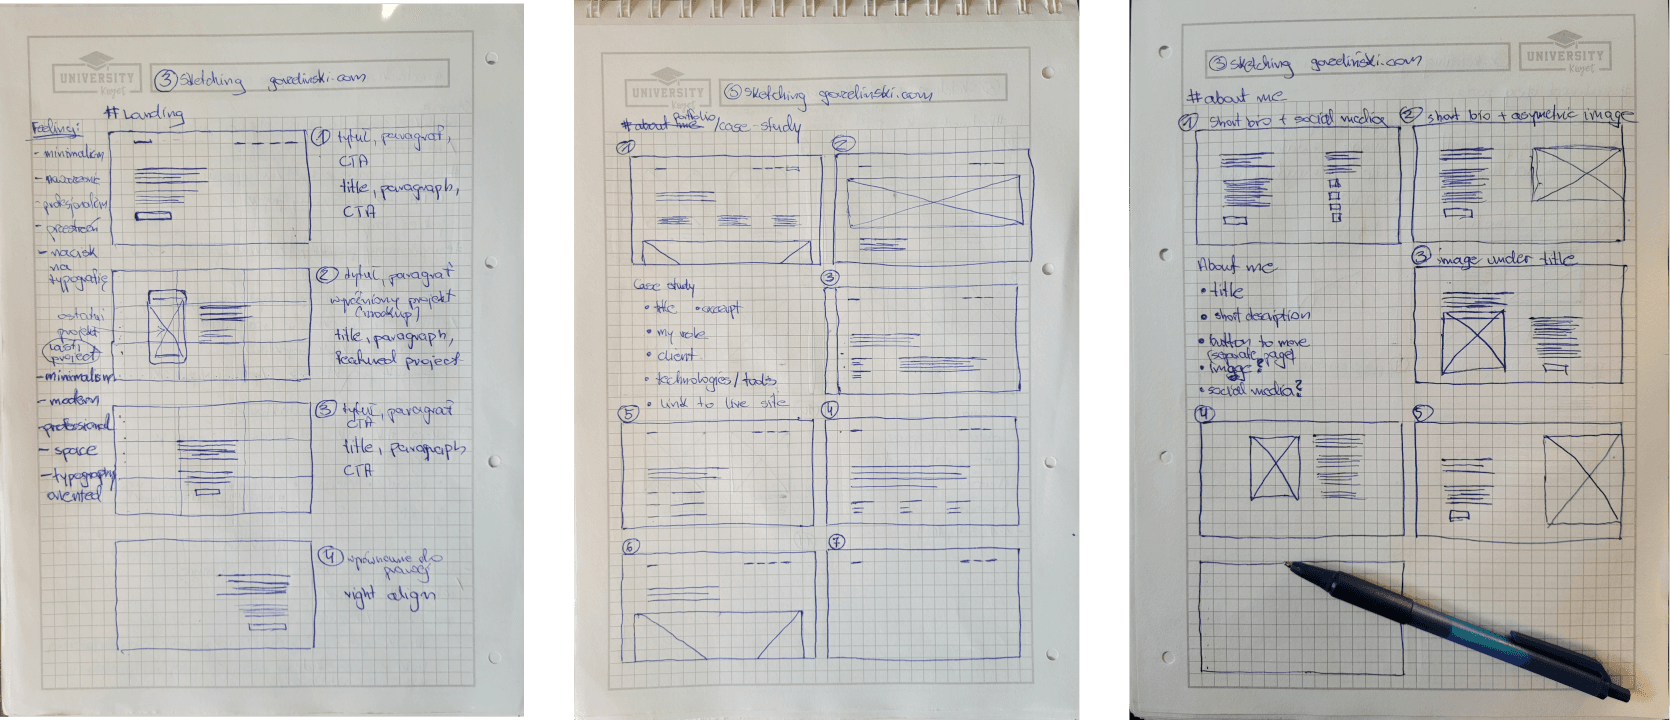 UNIVERSITY
③ sketching gorzelinski.com
#Landing
Feeling:
- minimalizm
- profesjonalizm
- przestrzeń
- nacisk
na
typografię
ostatni
projekt
last
project
- minimalism
- modern
- professional
- space
- typography
oriented
① tytuł, paragraf,
CTA
title, paragraph,
CTA
② tytuł, paragraf
wyróżniony projekt
(mockup)
title, paragraph,
featured project
③ tytuł, paragraf
CTA
title, paragraph
CTA
④ wyrównanie do
prawej
right align
UNIVERSITY
③ sketching gorzelinski.com
portfolio
#about me /case-study
①
②
Case study
• title • excerpt
• my role
• client
• technologies/tools
• link to live site
③
⑤
④
⑥
⑦
UNIVERSITY
③ sketching gorzelinski.com
#about me
① short bio + social media
② short bio + asymetric image
About me
• title
• short description
• button to more
(separate page)
• image?
• social media?
③ image under title
④
⑤